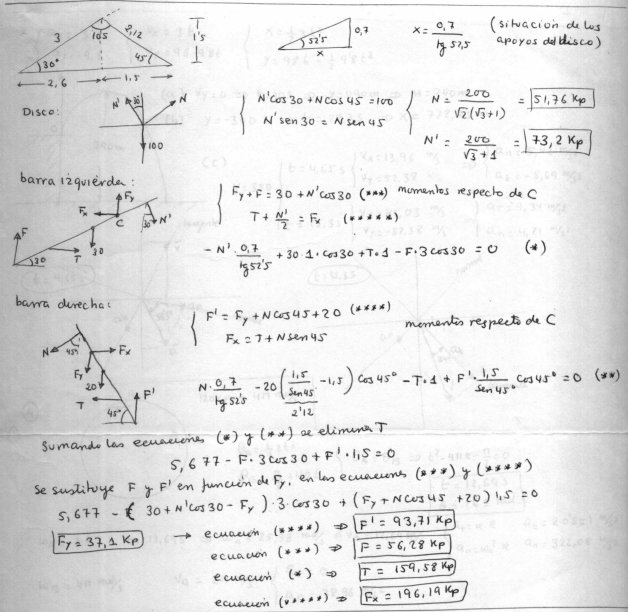 3 105 2,12 30° 45° 1'5
2,6 1,5
52'5 0,7 x
x = 0,7 / tg 52,5 (situación de los apoyos del disco)
Disco:
N' N 100
N' cos 30 + N cos 45 = 100
N' sen 30 = N sen 45
N = 200 / √2(√3+1) = 51,76 Kp
N' = 200 / √3+1 = 73,2 Kp
barra izquierda:
Fx Fy C 30 N' F 30 T 30
Fy + F = 30 + N' cos 30 (***) momentos respecto de C
T + N'/2 = Fx (*****)
- N' · 0,7 / tg 52'5 + 30·1·cos 30 + T·1 - F·3 cos 30 = 0 (*)
barra derecha:
N 45° Fx Fy 20 T 45° F'
F' = Fy + N cos 45 + 20 (****)
Fx = T + N sen 45
momentos respecto de C
N · 0,7 / tg 52'5 - 20 (1,5 / sen 45 - 1,5) cos 45° - T·1 + F' · 1,5 / sen 45° cos 45° = 0 (**)
2'12
Sumando las ecuaciones (*) y (**) se elimina T
5,677 - F·3 cos 30 + F'·1,5 = 0
Se sustituye F y F' en función de Fy, en las ecuaciones (***) y (****)
5,677 - ( 30 + N' cos 30 - Fy ) · 3 · cos 30 + (Fy + N cos 45 + 20) 1,5 = 0
Fy = 37,1 Kp → ecuación (****) ⇒ F' = 93,71 Kp
ecuación (***) ⇒ F = 56,28 Kp
ecuación (*) ⇒ T = 159,58 Kp
ecuación (*****) ⇒ Fx = 196,19 Kp